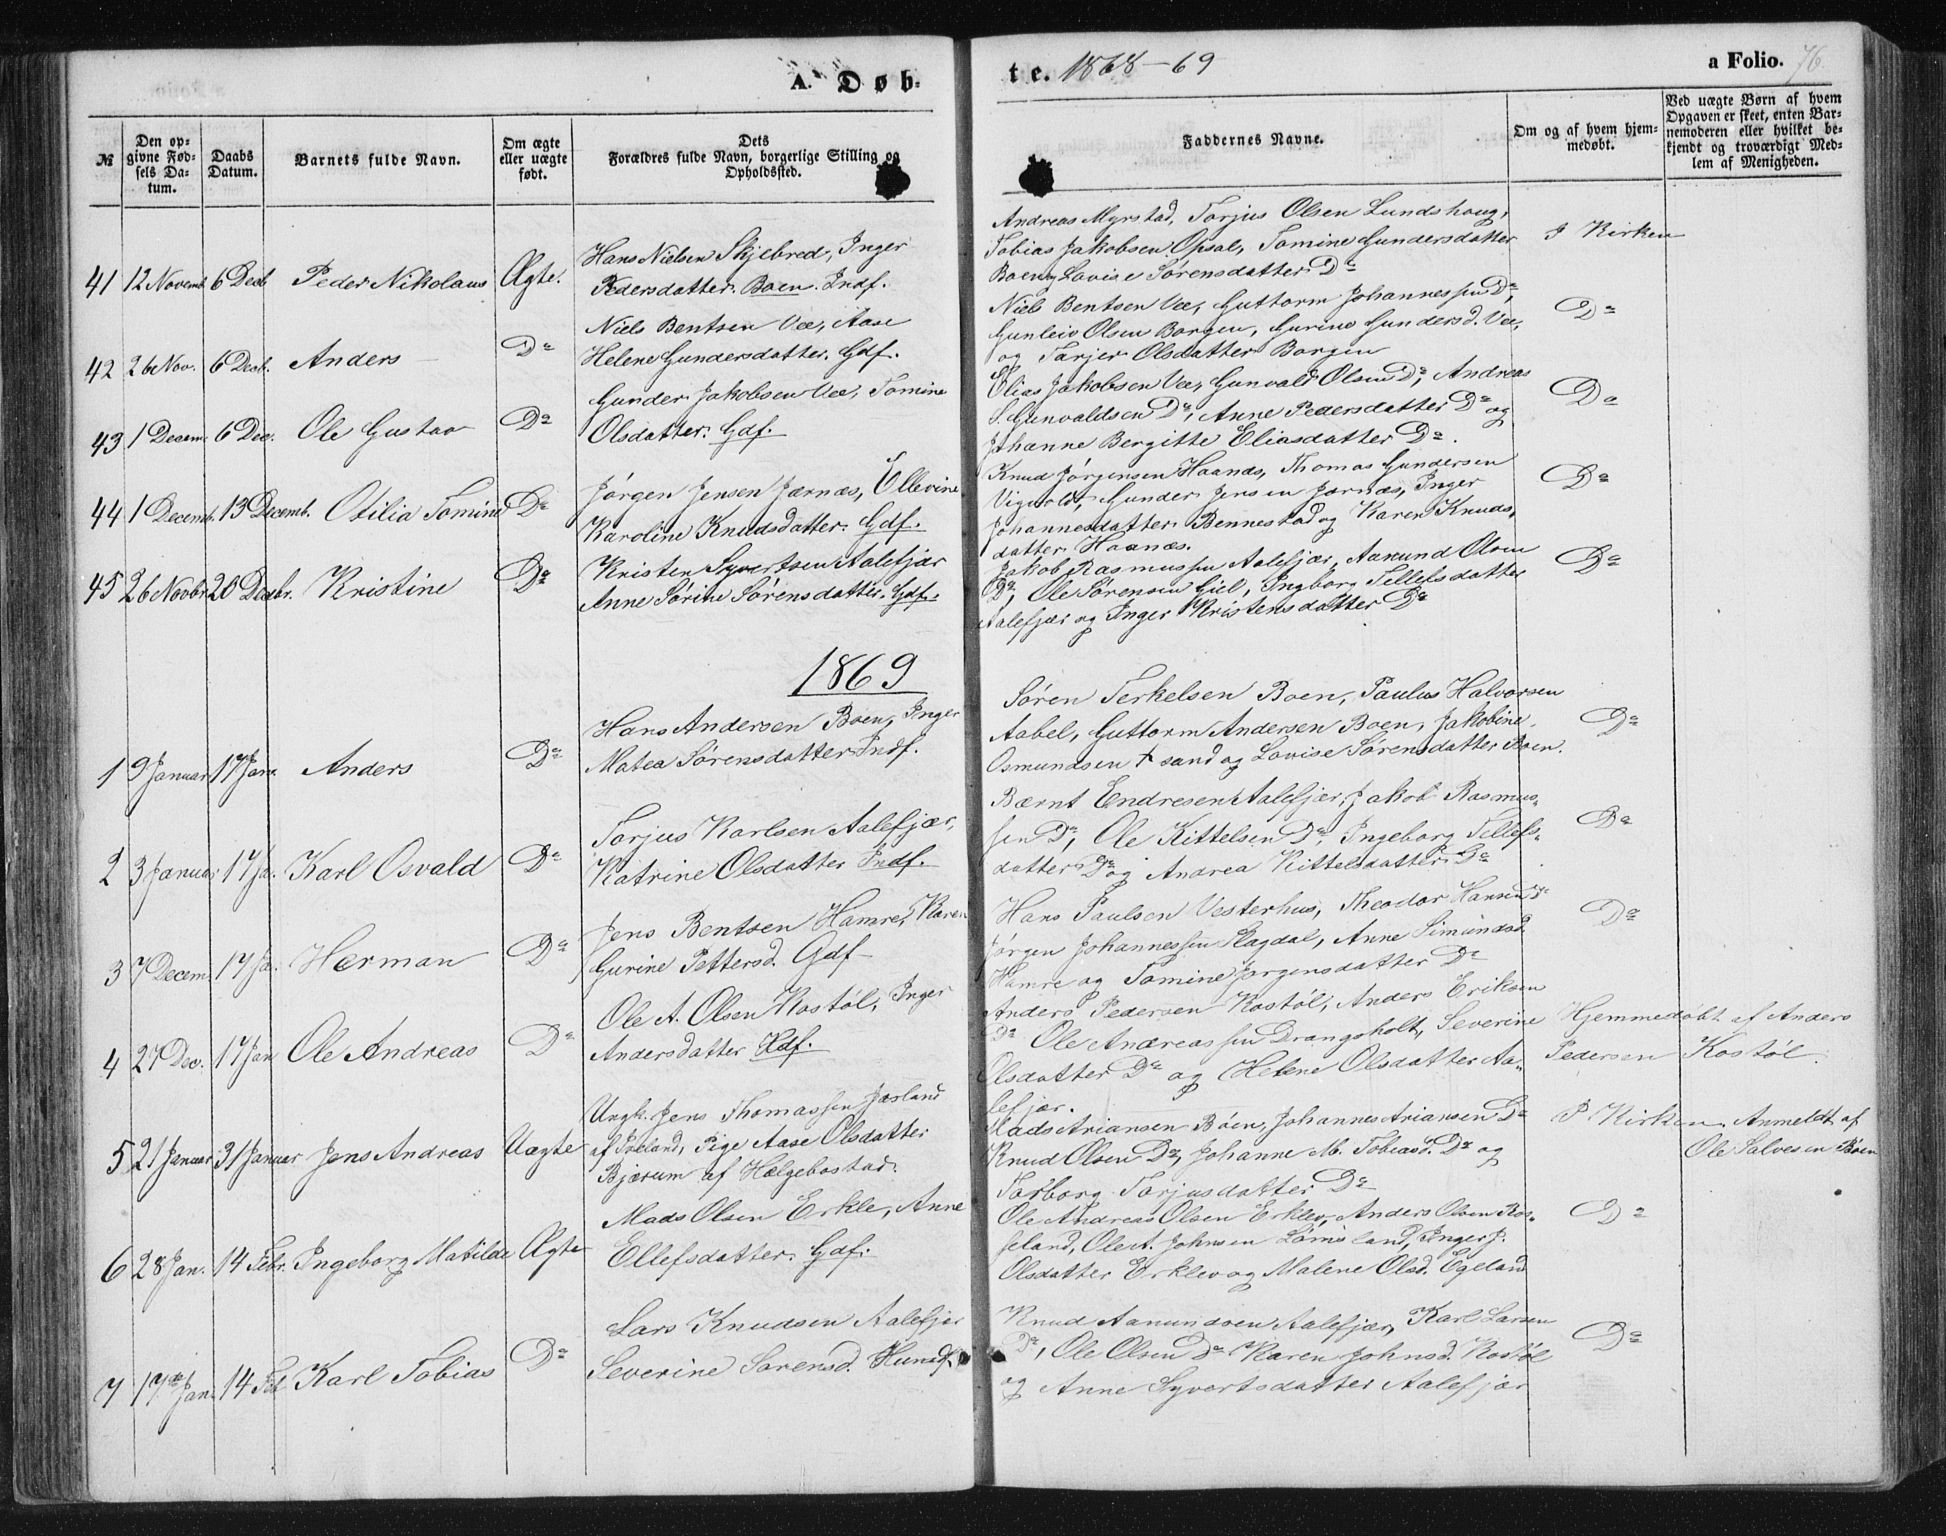 A. Døb-
te. 1868-69
a Folio. 76
№
Den opgivne Fødsels Datum.
Daabs Datum.
Barnets fulde Navn.
Om ægte eller uægte født.
Dets Forældres fulde Navn, borgerlige Stilling og Opholdssted.
Faddernes Navne.
Om og af hvem hjemmedøbt.
Ved uægte Børn af hvem Opgaven er skeet, enten Barnemoderen eller hvilket bekjendt og troværdigt Medlem af Menigheden.
41 12 Novemb. 6 Decb Peder Nikolaus Ægte.
Hans Nielsen Skjebred, Inger
Pedersdatter. Boen. Indf.
Andreas Myrstad, Torjus Olsen Lundshoug,
Tobias Jakobsen Opsal, Tomine Gundersdatter
Boen og Lovise Sørensdatter Do
I Kirken
42 26 Nov. 6 Decb. Anders Do
Niels Bentsen Vee, Aase
Helene Gundersdatter. Gdf.
Niels Bentsen Vee, Guttorm Johannessen Do,
Gunleiv Olsen Borgen, Gurine Gundersd. Vee,
og Tarjer Olsdatter Borgen
Do
43 1 Decem. 6 Dec. Ole Gustav Do
Gunder Jakobsen Vee, Tomine
Olsdatter. Gdf.
Elias Jakobsen Vee, Gunvald Olsen Do, Andreas
S. Gunvaldsen Do, Anne Pedersdatter Do og
Johanne Bergitte Eliasdatter Do.
Do
44 1 Decemb. 13 Decemb. Otilia Tomine Do
Jørgen Jensen Jærnæs, Ellevine
Karoline Knudsdatter. Gdf.
Knud Jørgensen Haanæs, Thomas Gundersen
Vigvold, Gunder Jensen Jærnæs, Inger
Johannesdatter Bennestad og Karen Knuds,
datter Haanæs.
Do
45 26 Novbr 20 Decbr. Kristine Do
Kristen Syvertsen Aalefjær
Anne Sørine Sørensdatter. Gdf.
Jakob Rasmussen Aalefjær, Aanund Olsen
Do, Ole Sørensen Giel, Ingborg Tellefsdatter
Aalefjær og Inger Kristensdatter Do
Do
1869
1 9 Januar 17 Jan. Anders Do
Hans Andersen Boen, Inger
Matea Sørensdatter Indf.
Søren Terkelsen Boen, Paulus Halvorsen
Aabel, Guttorm Andersen Boen, Jakobine
Osmundsen † sand og Lovise Sørensdatter Boen.
Do
2 3 Januar 17 Ja. Karl Osvald Do
Torjus Karlsen Aalefjær,
Katrine Olsdatter Indf.
Bærnt Endresen Aalefjær, Jakob Rasmus,
sen Do, Ole Kittelsen Do, Ingeborg Tellefs-
datter Do og Andrea Kittelsdatter Do
Do
3 7 Decem. 17 Ja. Herman Do
Jens Bentsen Hamre, Karen
Gurine Pettersd. Gdf
Hans Paulsen Vesterhus, Theodor Hansen Do
Jørgen Johannessen Slagdal, Anne Simonsd.
Hamre og Tomine Jørgensdatter Do
Do
4 27 Dec. 17 Jan Ole Andreas Do
Ole A. Olsen Kostøl, Inger
Andersdatter Hdf.
Anders Pedersen Kostøl, Anders Eriksen
Do Ole Andreassen Drangsholt, Severine
Olsdatter Do og Helene Olsdatter Aa-
lefjær.
Hjemmedøbt af Anders
Pedersen Kostøl.
5 21 Januar 31 Januar Jens Andreas Uægte
Ungk. Jens Thomassen Jærland
af Iveland, Pige Aase Olsdatter
Bjærum af Hælgebostad.
Mads Ariansen Boen, Johannes Ariansen Do
Knud Olsen Do, Johanne M. Tobiasd. Do og
Torborg Torjusdatter Do
I Kirken
Anmeldt af
Ole Salvesen Boen
6 28 Jan. 14 Febr. Ingeborg Matilde Ægte
Mads Olsen Erkle, Anne
Ellefsdatter. Gdf.
Ole Andreas Olsen Erklev, Anders Olsen Ros-
seland, Ole A. Johnsen Lømsland, Inger J.
Olsdatter Erklev og Malene Olsd. Egeland
Do
7 17de Jan. 14 Feb Karl Tobias Do
Lars Knudsen Aalefjær
Severine Sørensd. Hunsf.
Knud Aanundsen Aalefjær, Karl Larsen
Do, Ole Olsen Do Karen Johnsd. Kostøl
og Anne Syvertsdatter Aalefjær
Do